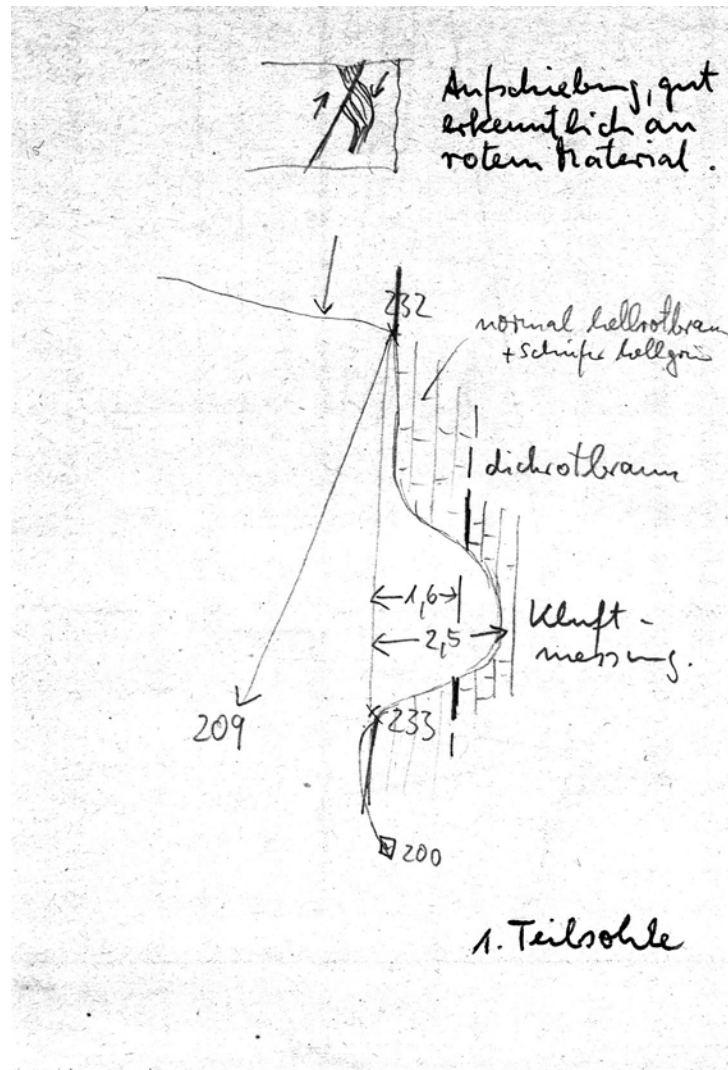 Aufschiebung, gut
erkenntlich an
rotem Material.
232
normal hellrotbraun
+ Schiefer hellgrün
dickrotbraun
1,6
2,5
Kluft-
messung.
209
233
200
1. Teilsohle